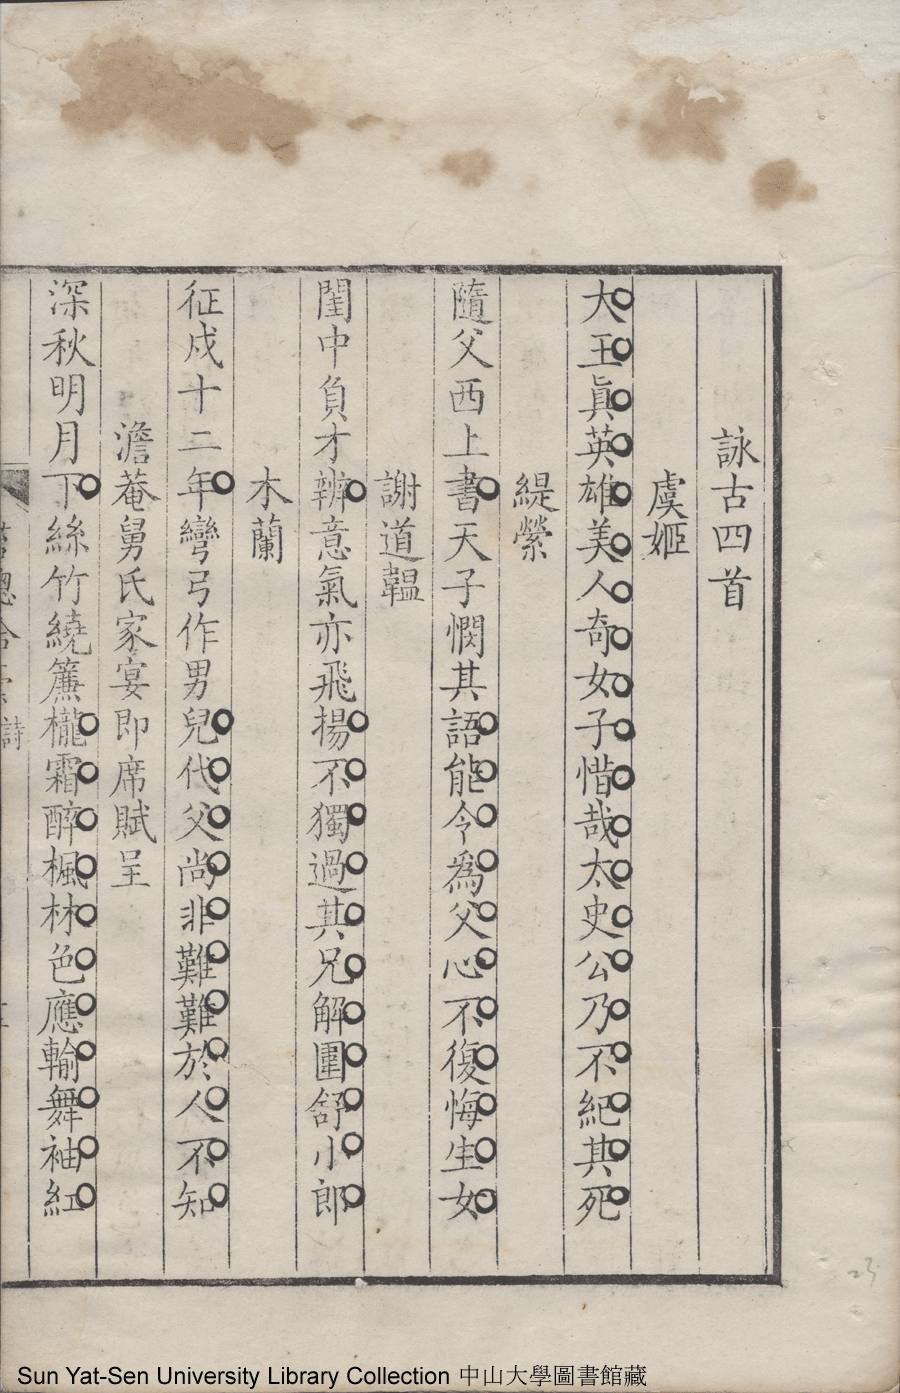 詠古四首
虞姬
大王眞英雄美人奇女子惜哉太史公乃不紀其死
緹縈
隨父西上書天子憫其語能令爲父心不復悔生女
謝道韞
閨中負才辨意氣亦飛揚不獨過其兄解圍舒小郎
木蘭
征戍十二年彎弓作男兒代父尚非難難於人不知
澹菴舅氏家宴即席賦呈
深秋明月下絲竹繞簾櫳霜醉楓林色應輸舞袖紅
詩
23
Sun Yat-Sen University Library Collection 中山大學圖書館藏